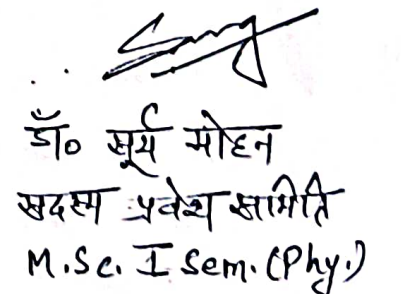 डॉ० सूर्य मोहन
सदस्य प्रवेश समिति
M.Sc. I Sem. (Phy.)